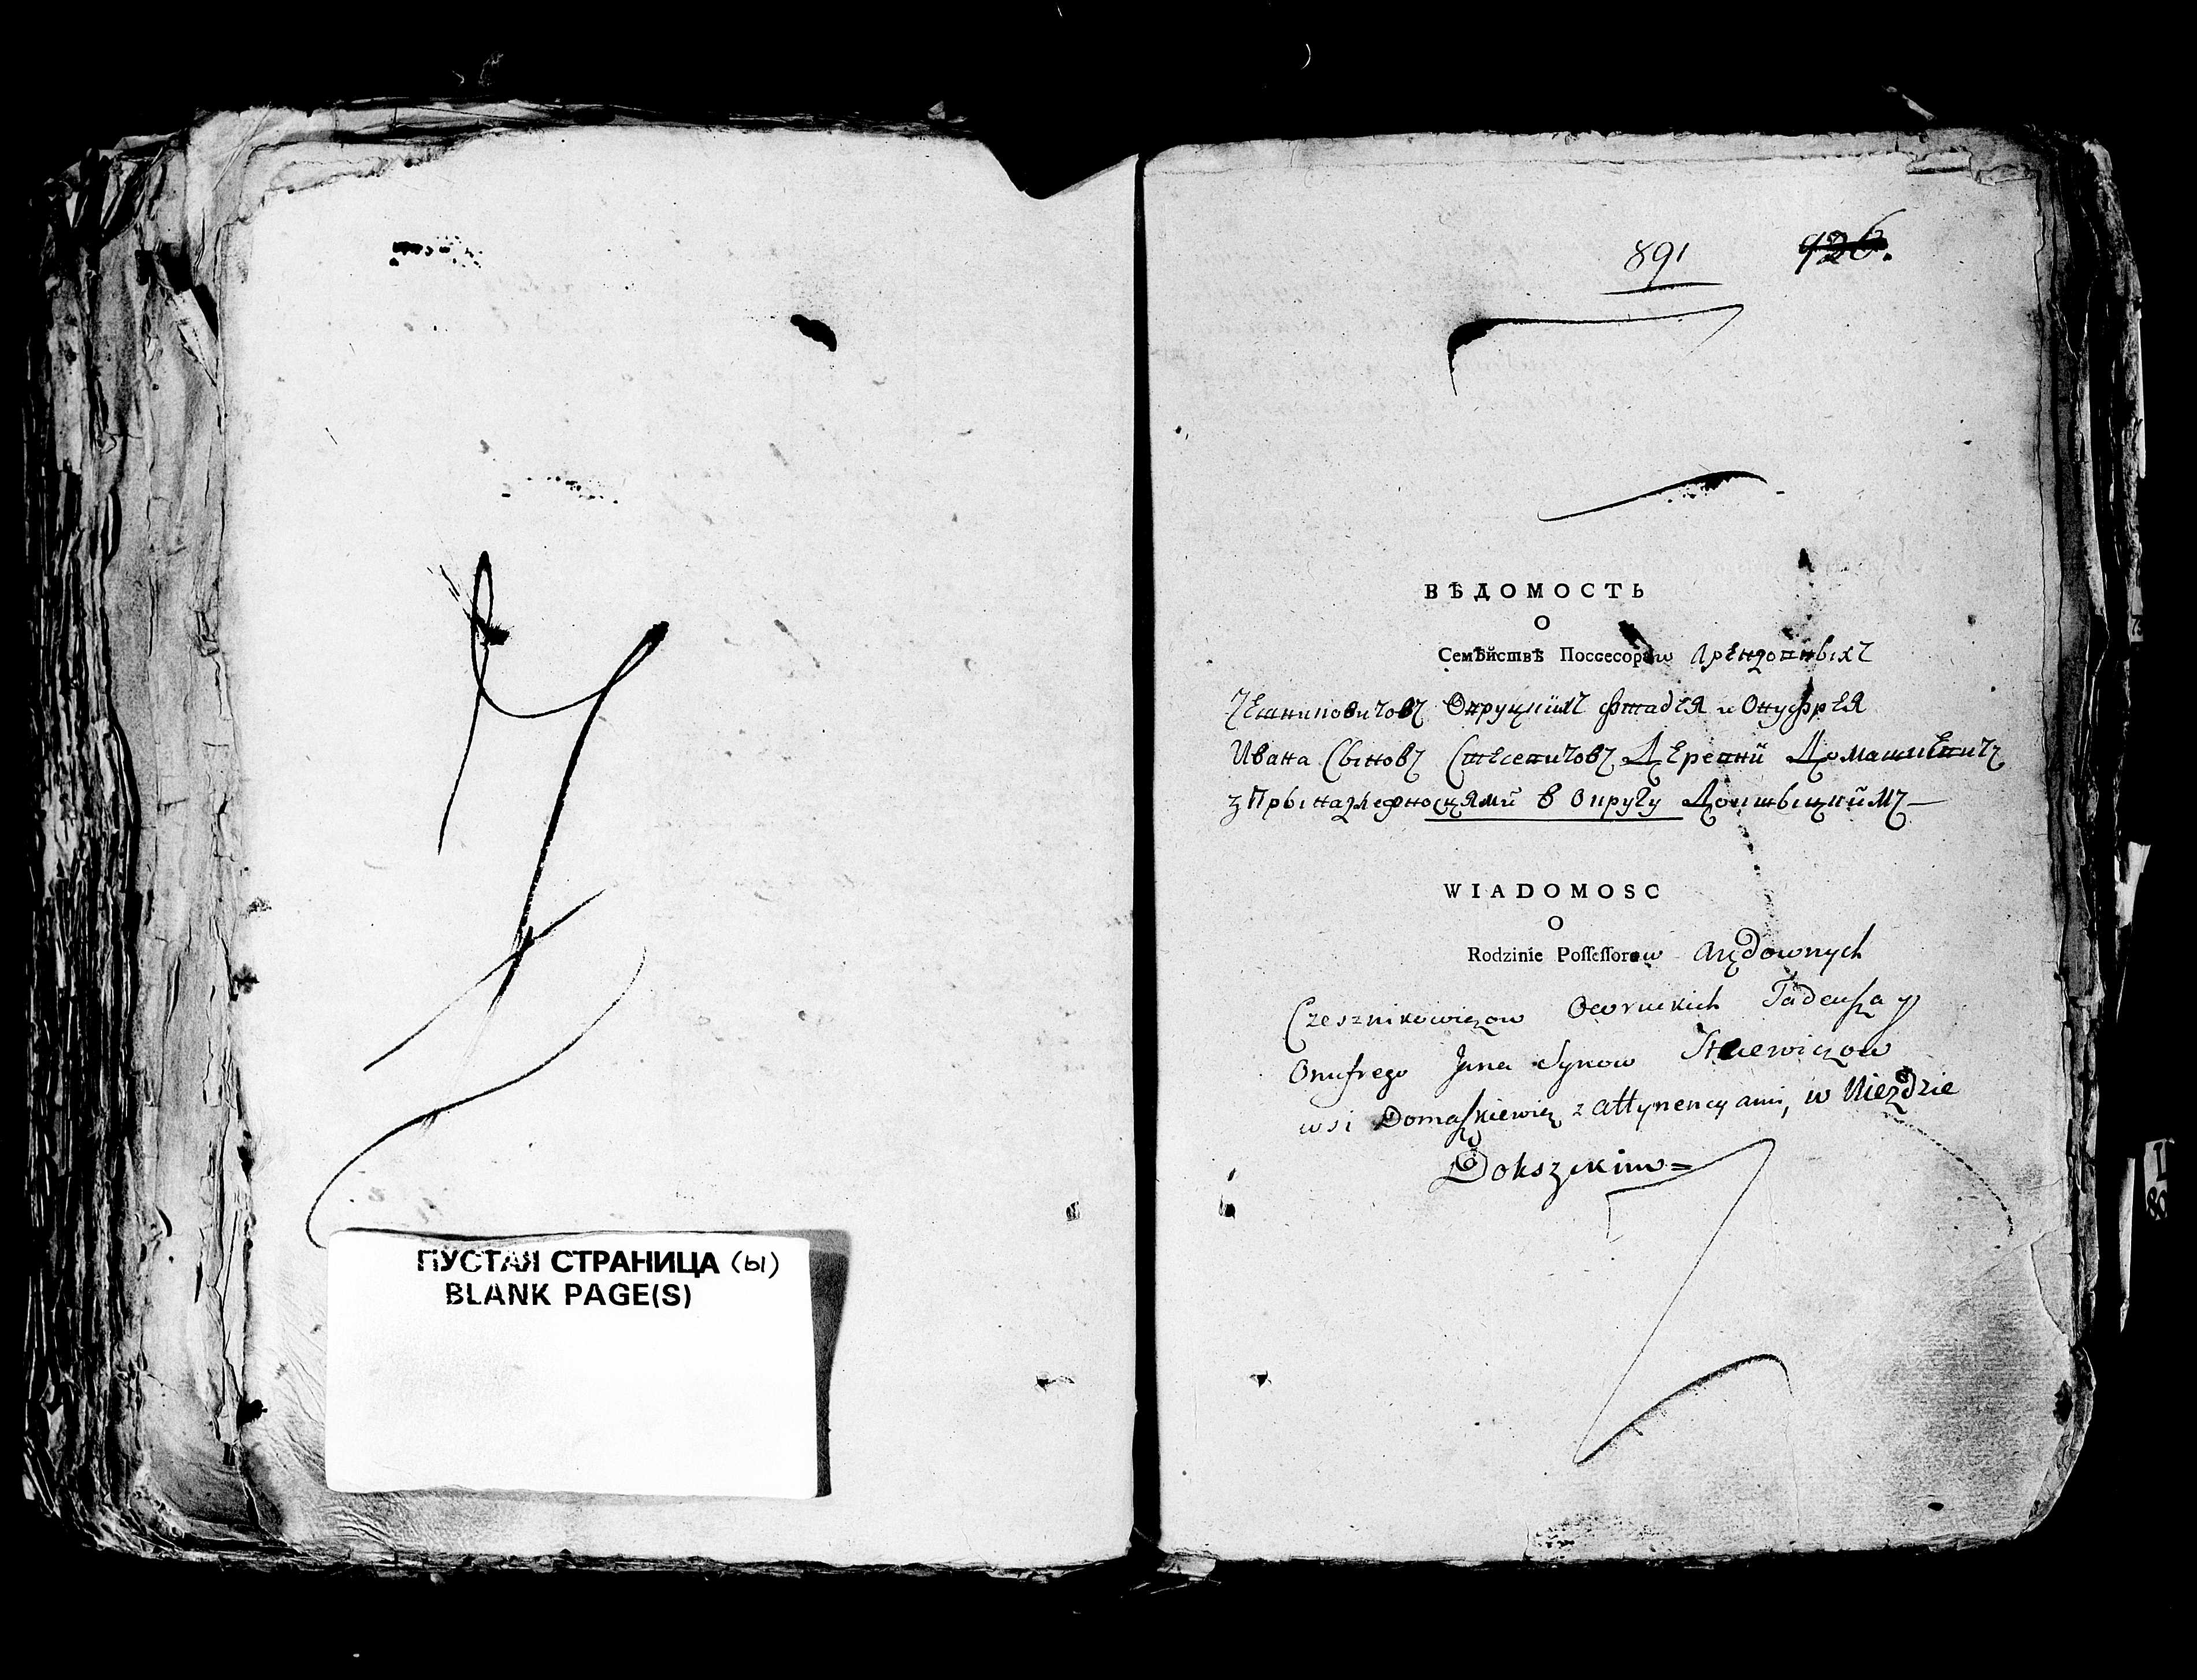 ПУСТАЯ СТРАНИЦА (ы)
BLANK PAGE(S)
891 926.
ВѢДОМОСТЬ
О
Семѣйствѣ Поссесоровъ Арендовныхъ
Чешниковичовъ Окруцкихъ Фтадея и Онуфрея
Ивана Сыновъ Деревни Домашкевичъ
в округу Докшыцкимъ
WIADOMOSC
O
Rodzinie Poſſeſſorow Arędownych
Czesznikowiczow Tadeusza y
Onufrego Jana Synow
wsi Domaszkiewicz z attynencyami, w Uiezdzie
Dokszyckim =